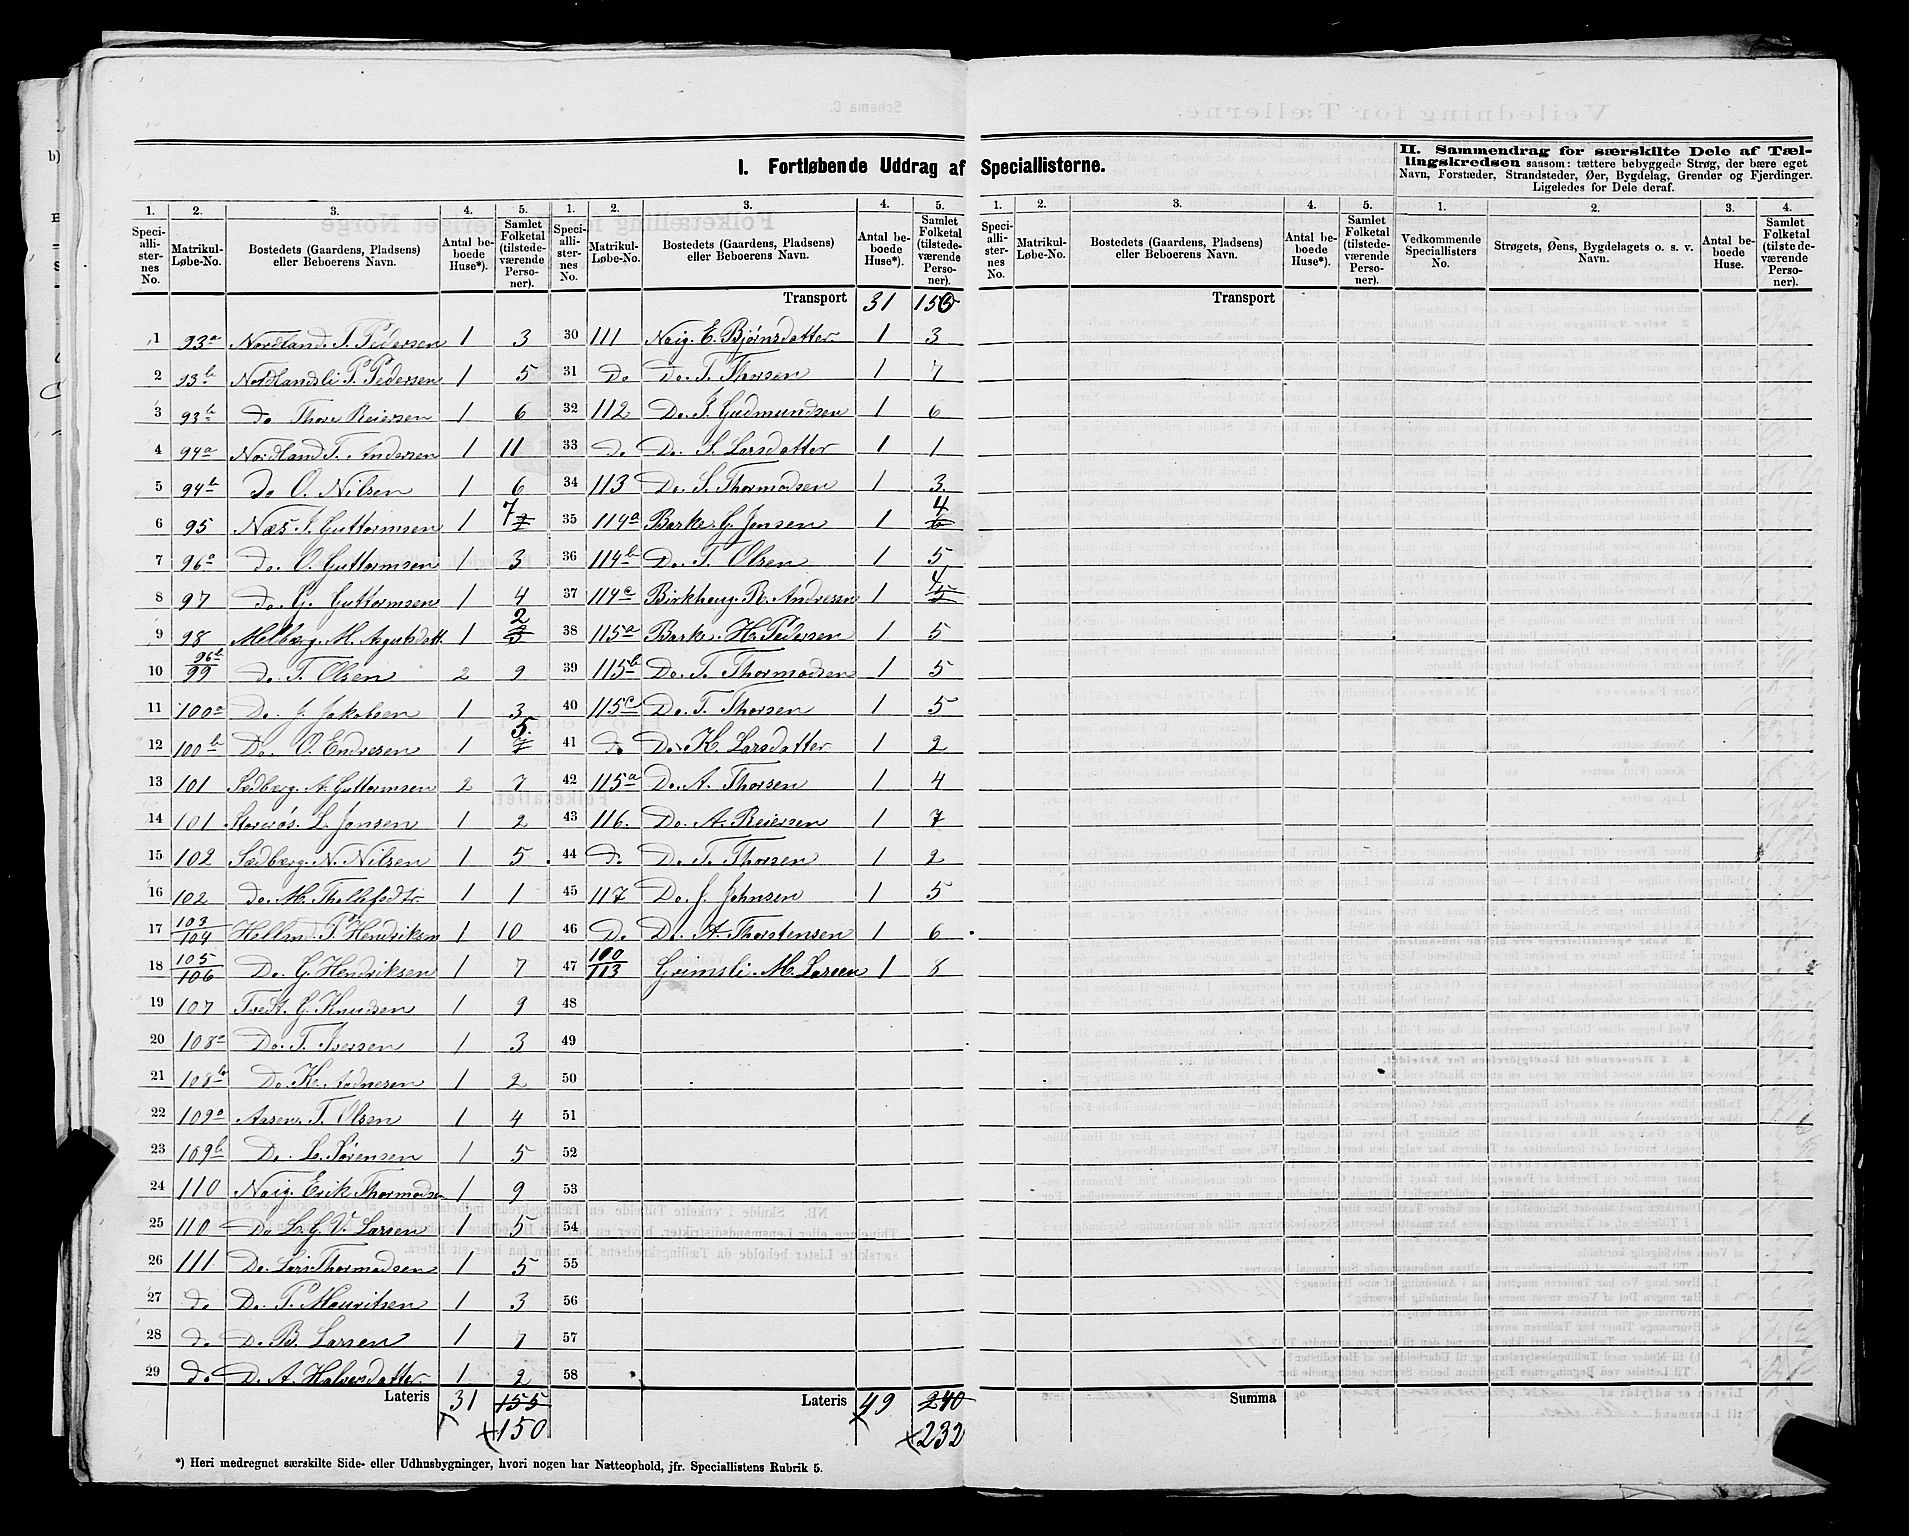 I. Fortløbende Uddrag af Speciallisterne.
II. Sammendrag for særskilte Dele af Tællingskredsen saasom: tættere bebyggede Strøg, der bære eget Navn, Forstæder, Strandsteder, Øer, Bygdelag, Grender og Fjerdinger. Ligeledes for Dele deraf.
1. 2. 3. 4. 5. 1. 2. 3. 4. 5. 1. 2. 3. 4. 5. 1. 2. 3. 4.
Speciallisternes No. Matrikul-Løbe-No. Bostedets (Gaardens, Pladsens) eller Beboerens Navn. Antal beboede Huse*). Samlet Folketal (tilstedeværende Personer).
Speciallisternes No. Matrikul-Løbe-No. Bostedets (Gaardens, Pladsens) eller Beboerens Navn. Antal beboede Huse*). Samlet Folketal (tilstedeværende Personer).
Speciallisternes No. Matrikul-Løbe-No. Bostedets (Gaardens, Pladsens) eller Beboerens Navn. Antal beboede Huse*). Samlet Folketal (tilstedeværende Personer).
Vedkommende Speciallisters No. Strøgets, Øens, Bygdelagets o. s. v. Navn. Antal beboede Huse. Samlet Folketal (tilstedeværende Personer).
1 93a Nordland. T. Pedersen 1 3
2 93b Nordlandsli P. Pedersen 1 5
3 93b do Thore Reiersen 1 6
4 94a Nordland T. Andersen 1 11
5 94b Do O. Nilsen 1 6
6 95 Næs. J. Guttormsen 1 7
7 96a do. O. Guttormsen 1 3
8 97 do. G. Guttormsen 1 4
9 98 Melberg. M. 1 2 3
10 96b/99 do T. Olsen 2 9
11 100a Do. J. Jakobsen 1 3
12 100b Do. O. Endresen 1 5 7
13 101 Sedberg. A. Guttormsen 2 7
14 101 Storrøs. L. Jensen 1 2
15 102 Sædberg. N. Nilsen 1 5
16 102 do. M. Thellefsdtr 1 1
17 103/104 Helland P. Hendriksen 1 10
18 105/106 Do. G. Hendriksen 1 7
19 107 Tvedt. G. Knudsen 1 9
20 108a Do. T. Iversen 1 3
21 108b Do. K. Aadnesen 1 2
22 109a Aasen. T. Olsen 1 4
23 109b Do. L. Sørensen 1 5
24 110 Naig. Erik Thormodsen 1 9
25 110 Do L. G. V. Larsen 1 5
26 111 Do. Lars Thormodsen 1 5
27 do Do. P. Mouritsen 1 3
28 do Do B. Larsen 1 7
29 do D. A. Halvorsdatter 1 2
Lateris 31 155
150
Transport 31 150
30 111 Naig. E. Bjørnsdatter 1 3
31 Do Do. T. Thorsen 1 7
32 112 Do. T. Gudmundsen 1 6
33 do Do. S. Larsdatter 1 1
34 113 Do. S. Thormodsen 1 3
35 114a Barke. G. Jensen 1 4 6
36 114b Do. T. Olsen 1 5
37 114c Birkhaug. R. Andresen 1 4 5
38 115a Barke. H. Pedersen 1 5
39 115b Do. T. Thormodsen 1 5
40 115c Do. T. Thorsen 1 5
41 do Do. K. Larsdatter 1 2
42 115a Do. A. Thorsen 1 4
43 116. Do. A. Reiersen 1 7
44 do Do. T. Thorsen 1 2
45 117 Do. J. Johnsen 1 5
46 Do Do. A. Thorstensen 1 6
47 100/113 Grimsli. M. Larsen 1 8
48
49
50
51
52
53
54
55
56
57
58
Lateris 49 240
232
Transport
Summa
*) Heri medregnet særskilte Side- eller Udhusbygninger, hvori nogen har Natteophold, jfr. Speciallistens Rubrik 5.